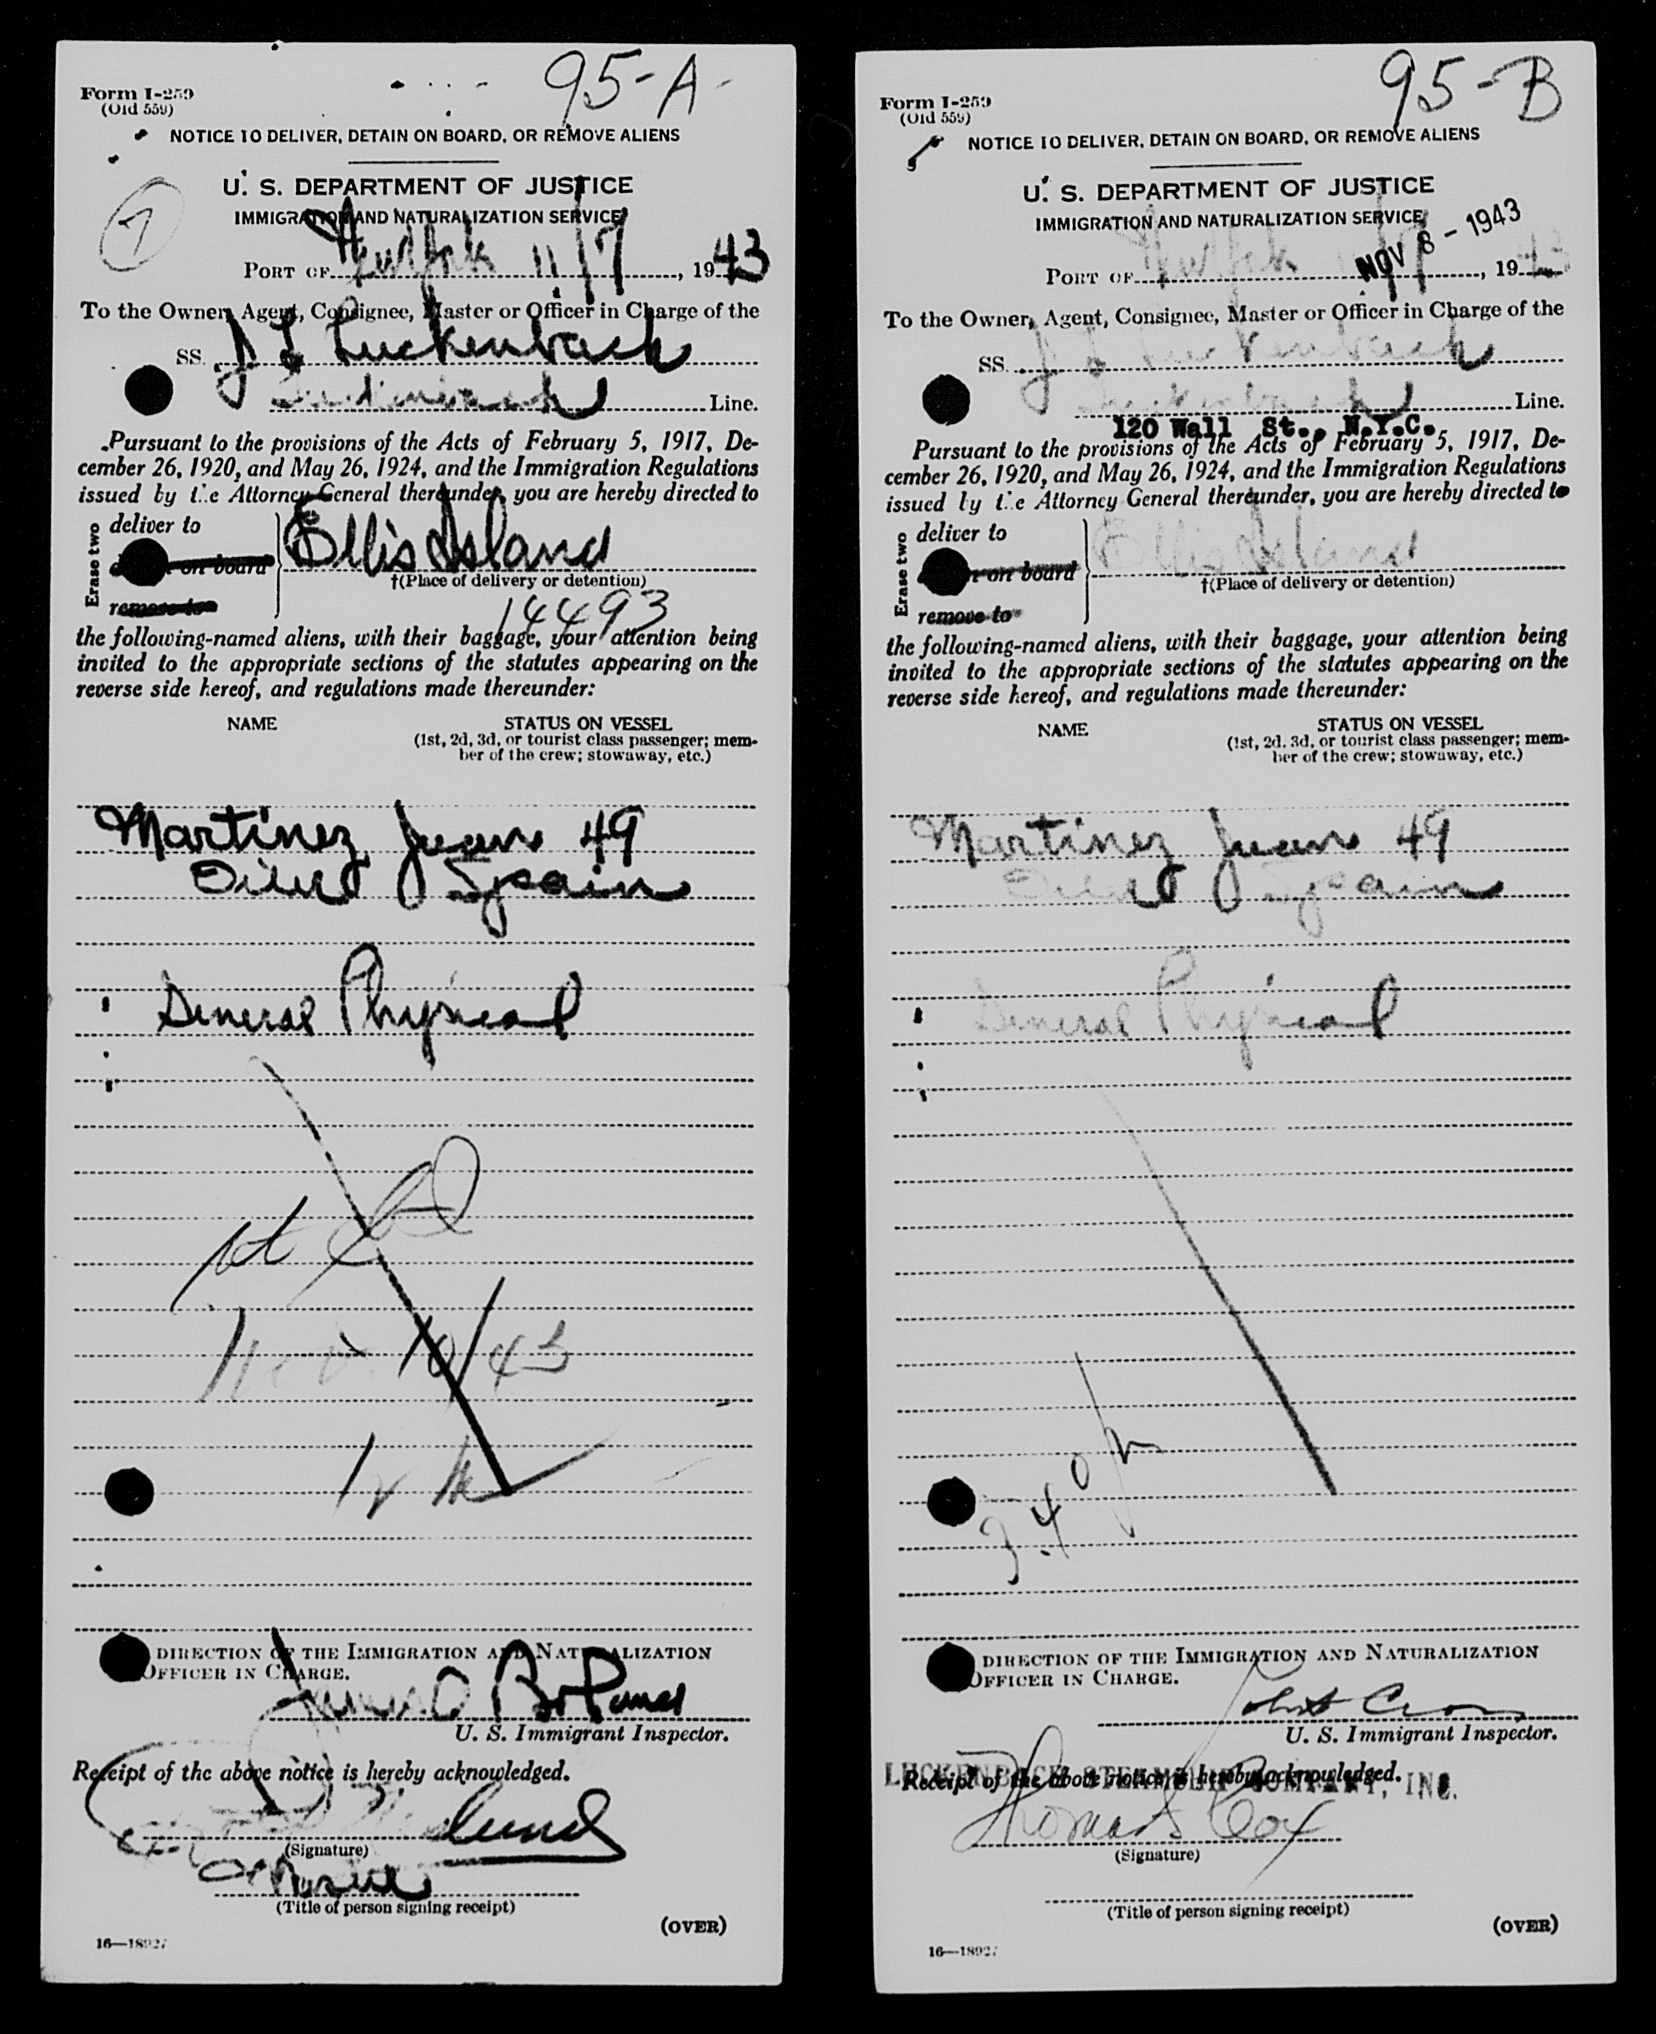 95-A
Form I-259
(Old 559)
NOTICE TO DELIVER, DETAIN ON BOARD, OR REMOVE ALIENS
U. S. DEPARTMENT OF JUSTICE
IMMIGRATION AND NATURALIZATION SERVICE
7
PORT OF New York 11/7, 1943
To the Owner, Agent, Consignee, Master or Officer in Charge of the
SS. J L Luckenbach
Luckenbach Line.
Pursuant to the provisions of the Acts of February 5, 1917, De-
cember 26, 1920, and May 26, 1924, and the Immigration Regulations
issued by the Attorney General thereunder, you are hereby directed to
Erase two
deliver to
on board
remove to
Ellis Island
†(Place of delivery or detention)
14493
the following-named aliens, with their baggage, your attention being
invited to the appropriate sections of the statutes appearing on the
reverse side hereof, and regulations made thereunder:
NAME STATUS ON VESSEL
(1st, 2d, 3d, or tourist class passenger; mem-
ber of the crew; stowaway, etc.)
Martinez, Juan 49
Oiler Spain
General Physical
Nov. 10/43
DIRECTION OF THE IMMIGRATION AND NATURALIZATION
OFFICER IN CHARGE.
U. S. Immigrant Inspector.
Receipt of the above notice is hereby acknowledged.
(Signature)
(Title of person signing receipt)
(OVER)
16—18927
95-B
Form I-259
(Old 559)
NOTICE TO DELIVER, DETAIN ON BOARD, OR REMOVE ALIENS
U. S. DEPARTMENT OF JUSTICE
IMMIGRATION AND NATURALIZATION SERVICE
NOV 8 - 1943
PORT OF New York 11/7, 1943
To the Owner, Agent, Consignee, Master or Officer in Charge of the
SS. J L Luckenbach
Luckenbach Line.
120 Wall St., N.Y.C.
Pursuant to the provisions of the Acts of February 5, 1917, De-
cember 26, 1920, and May 26, 1924, and the Immigration Regulations
issued by the Attorney General thereunder, you are hereby directed to
Erase two
deliver to
on board
remove to
Ellis Island
†(Place of delivery or detention)
the following-named aliens, with their baggage, your attention being
invited to the appropriate sections of the statutes appearing on the
reverse side hereof, and regulations made thereunder:
NAME STATUS ON VESSEL
(1st, 2d, 3d, or tourist class passenger; mem-
ber of the crew; stowaway, etc.)
Martinez Juan 49
Oiler Spain
General Physical
DIRECTION OF THE IMMIGRATION AND NATURALIZATION
OFFICER IN CHARGE.
U. S. Immigrant Inspector.
Receipt of the above notice is hereby acknowledged.
LUCKENBACH STEAMSHIP COMPANY, INC.
Thomas Cox
(Signature)
(Title of person signing receipt)
(OVER)
16—18927